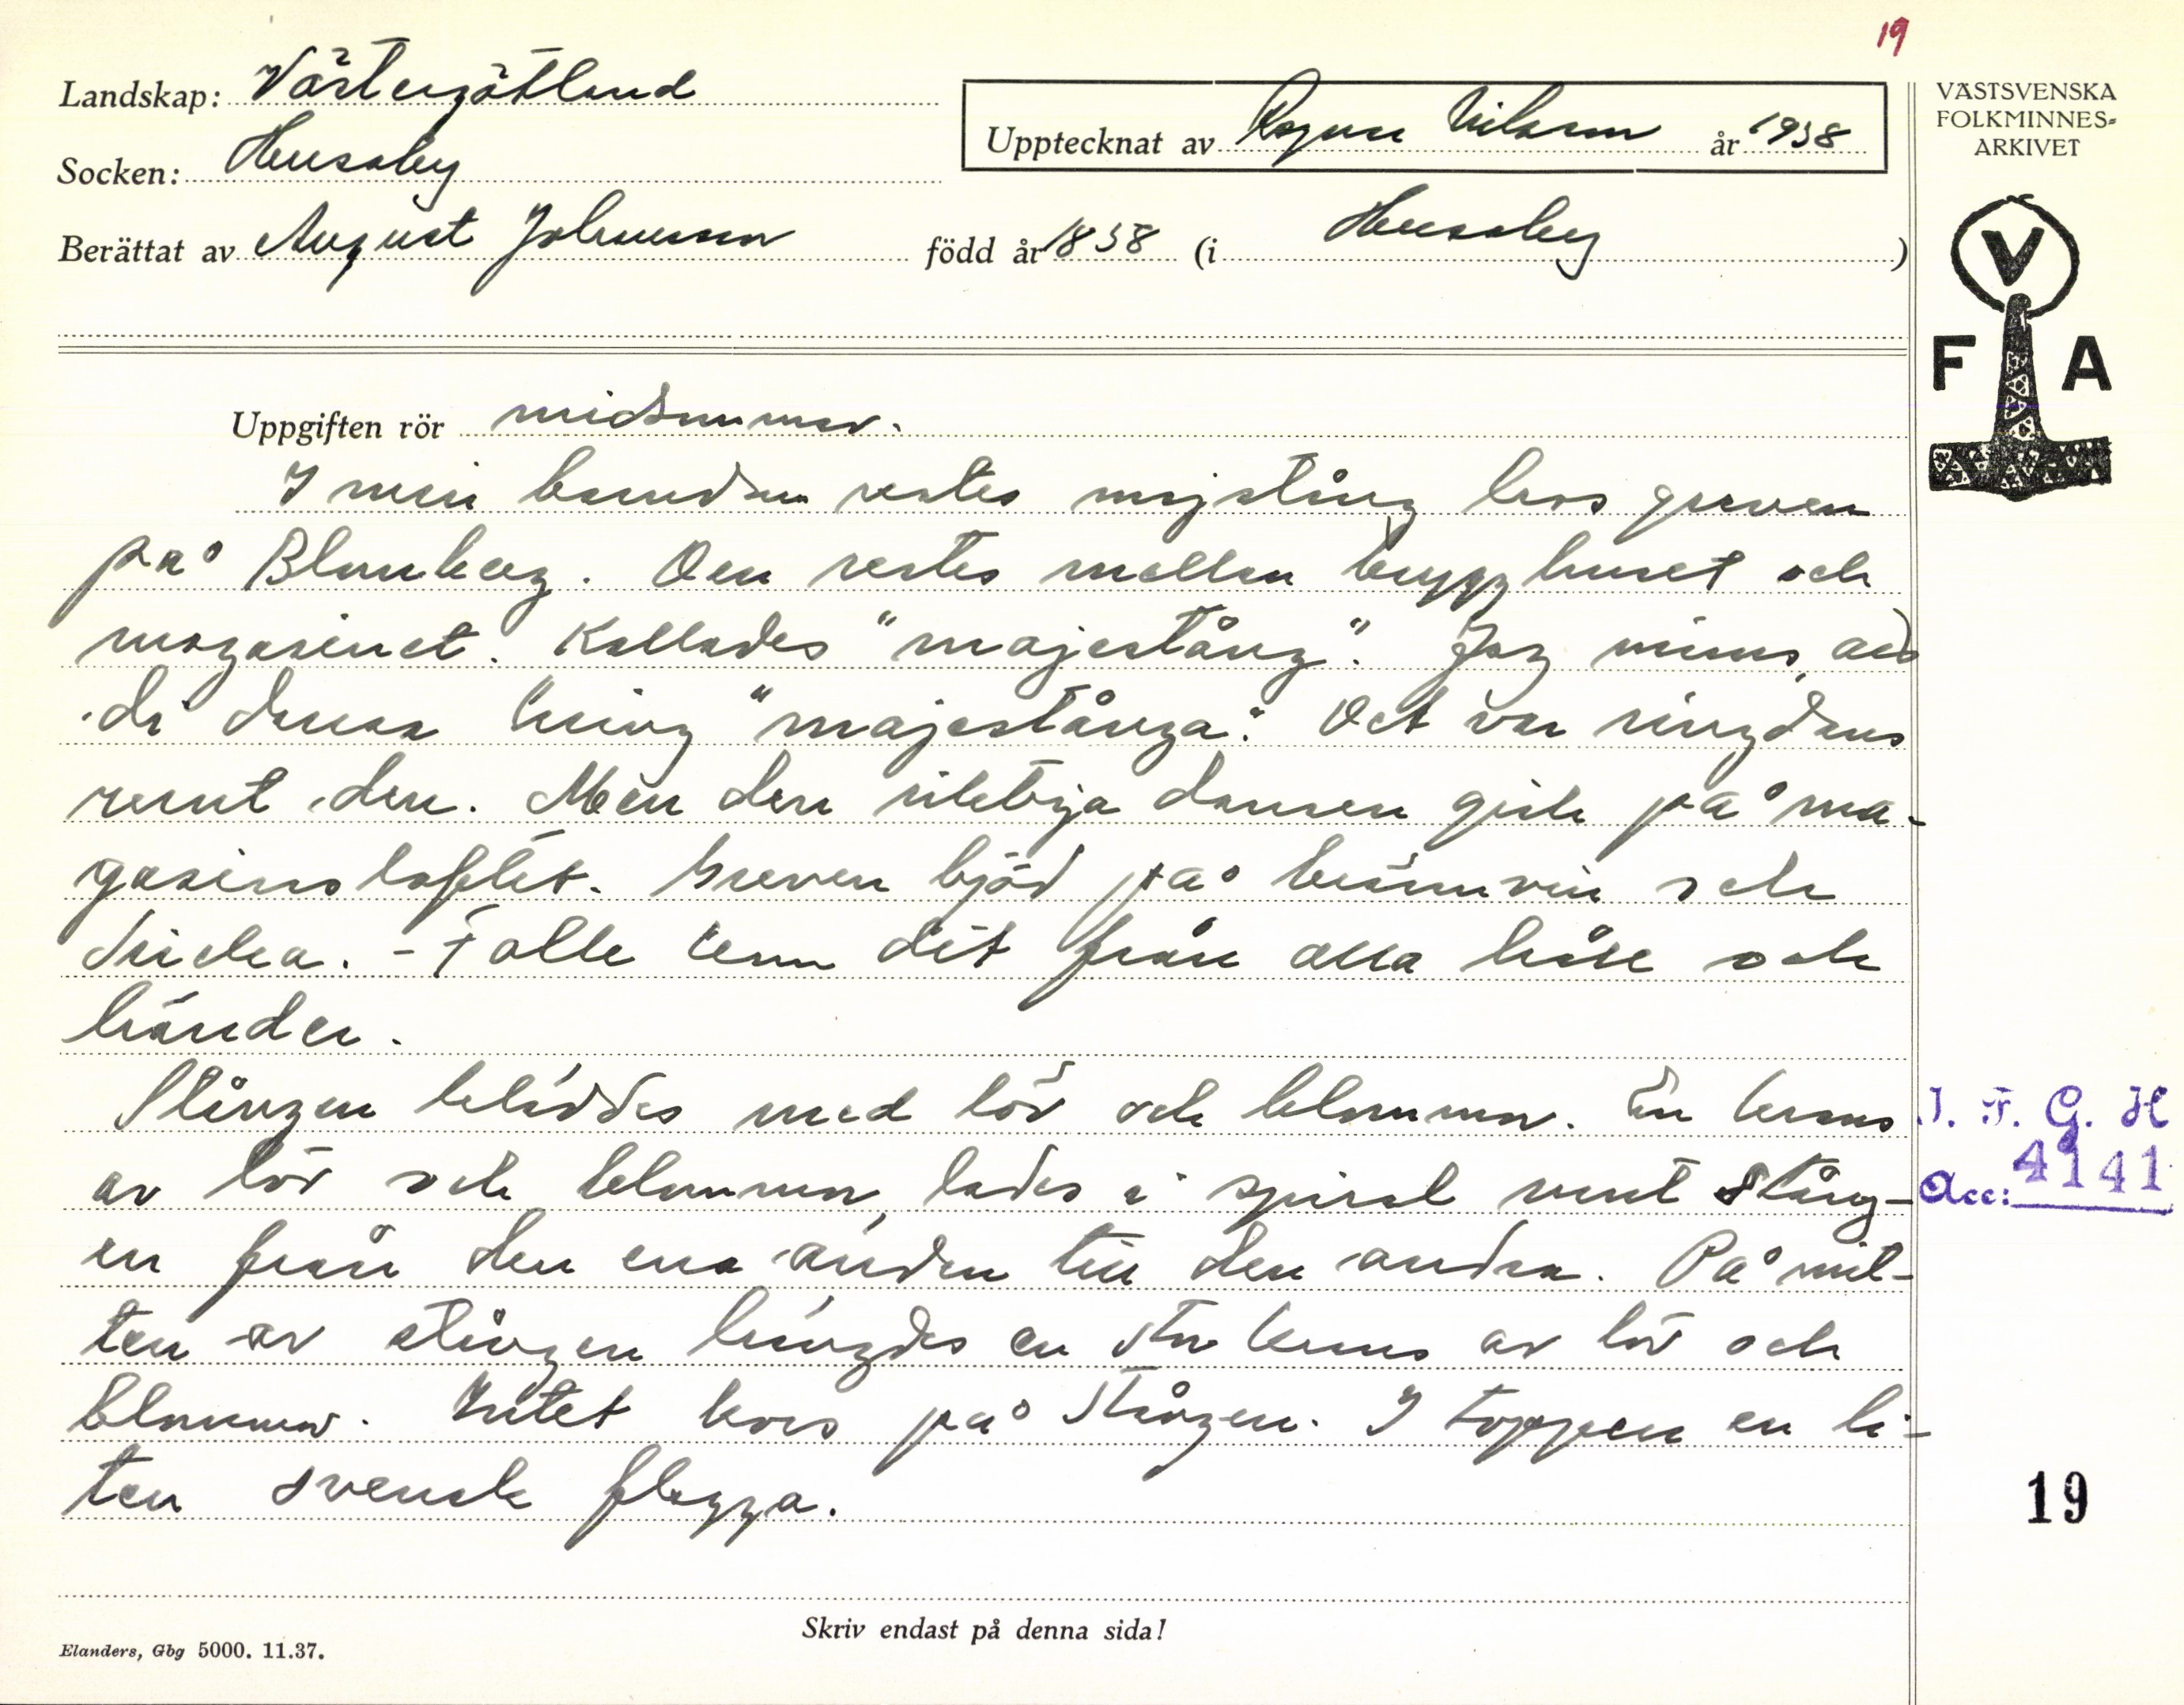 19
Landskap: Västergötland
Socken: Husaby
Upptecknat av Ragnar Nilsson år 1938
Berättat av August Johansson född år 1858 (i Husaby)
VÄSTSVENSKA
FOLKMINNES-
ARKIVET
V
F A
Uppgiften rör midsommar.
I min barndom restes majstång hos greven
på Blomberg. Den restes mellan brygghuset och
magasinet. Kallades "majestång". Jag minns, att
di dansa kring "majestånga". Det var ringdans
runt den. Men den riktiga dansen gick på ma-
gasinsloftet. Greven bjöd på brännvin och
dricka. - Folk kom dit från alla håll och
kanter.
Stången kläddes med löv och blommor. En krans
av löv och blommor, lades i spiral runt stång-
en från den ena änden till den andra. På mit-
ten av stången hängdes en stor krans av löv och
blommor. Intet kors på stången. I toppen en li-
ten svensk flagga.
I. F. G. H
Acc: 4141
19
Skriv endast på denna sida!
Elanders, Gbg 5000. 11.37.